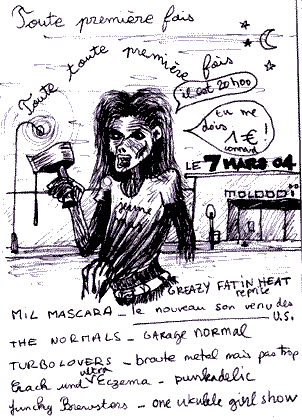 Toute première fois
Toute toute première fois
il est 20h00
tu me
dois
1€ !
connard
LE 7 MARS 04
MOLODOÏ
GREAZY FAT IN HEAT
reprise
MIL MASCARA _ le nouveau son venu des
U.S.
THE NORMALS _ GARAGE NORMAL
TURBOLOVERS _ broute metal mais pas trop
Crack und ultra Eczema _ punkadelic
funky Brewsters _ one ukulele girl show